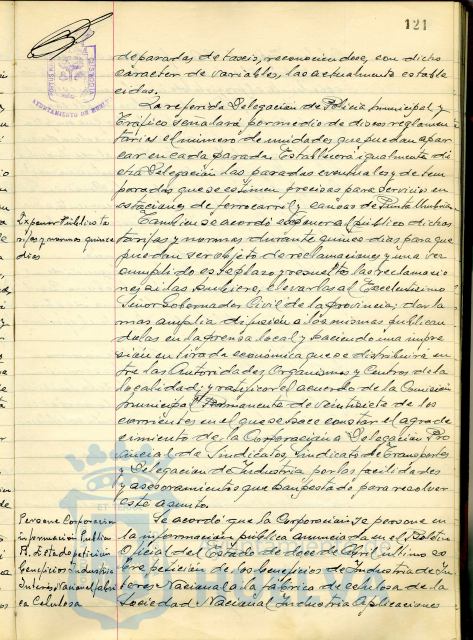 121
de paradas de taxis, reconociendose, con dicho
carácter de variables, las actualmente estable
cidas.
La referida Delegación de Policia municipal y
Tráfico señalará por medio de discos reglamen
tarios el número de unidades que puedan apar
car en cada parada. Establecerá igualmente di
cha Delegación las paradas eventuales y de tem
porada que se estimen precisas para servicio en
estaciones de ferrocarril y canoas de Punta Umbria
Exponer Público ta
rifas y normas quince
dias
Tambien se acordó exponer al público dichas
tarifas y normas durante quince dias para que
puedan ser objeto de reclamaciones y una vez
cumplido este plazo y resueltas las reclamacio
nes, si las hubiere, elevarlas al Excelentisimo
Señor Gobernador Civil de la provincia; dar la
mas amplia difusión a los mismas publican
dolas en la prensa local y haciendo una impre
sión en tirada económica que se distribuirá en
tre las Autoridades, Organismos y Centros de la
localidad; y ratificar el acuerdo de la Comisión
municipal Permanente de veintisiete de los
corrientes en el que se hace constar el agrade
cimiento de la Corporación a Delegación Pro
vincial de Sindicatos, Sindicato de Transportes
y Delegación de Industria por las facilidades
y asesoramientos que han prestado para resolver
este asunto.
Persone Corporación
información Publica
B. Estado petición
Beneficios Industria
Interés Nacional fabri
ca Celulosa
Se acordó que la Corporación se persone en
la información publica anunciada en el Boletin
Oficial del Estado de doce de Abril ultimo so
bre petición de los beneficios de Industria de In
terés Nacional a la fábrica de celulosa de la
Sociedad Nacional Industria Aplicaciones